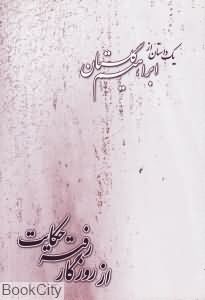 یک داستان از
ابراهیم گلستان
از روزگار رفته حکایت
BookCity